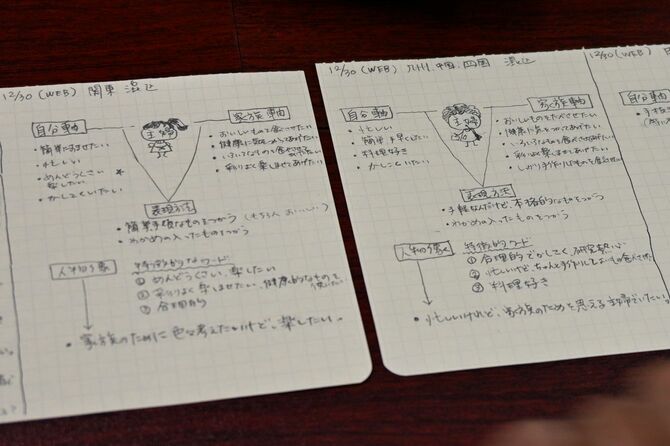 12/30 (WEB) 関東 混込
自分軸
家族軸
主婦
・簡単に済ませたい
・忙しい
・めんどうくさい
楽したい
・かしこくいたい
・おいしいものを食べさせたい
・健康に気をつかってあげたい
・いろいろなものを食べさせたい
・彩りよく楽しませてあげたい
表現方法
・簡単手頃なものをつかう (もちろん おいしい)
・わかめの入ったものをつかう
人物像
特徴的なワード
① めんどうくさい、楽したい
② 彩りよく 楽しませたい、健康的なものを使いたい
③ 合理的
・家族のために 色々考えたいけど、楽したい。
12/30 (WEB) 九州、中国、四国 混込
自分軸
家族軸
主婦
・忙しい
・簡単 手早くしたい
・料理好き
・かしこくいたい
・おいしいものをたべさせたい
・健康に気をつかってあげたい
・いろいろなものを食べさせたい
・彩りよく楽しませてあげたい
・しっかり手作りしたものを食べさせたい
表現方法
・手軽なんだけど、本格的なものをつかう
・わかめの入ったものをつかう
人物像
特徴的ワード
① 合理的でかしこく、研究熱心
② 忙しいけど、ちゃんと手作りしておいしいの食べて欲しい
③ 料理好き
・忙しいけれど、家族のためを思える主婦でいたい
12/30 (WEB)
自分軸